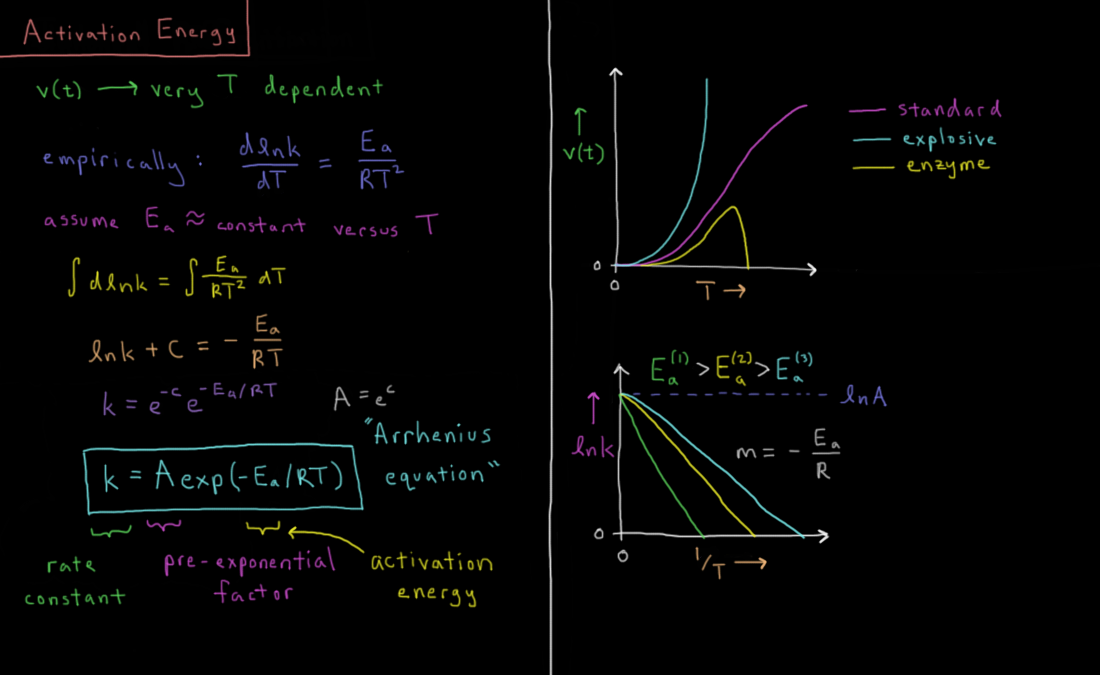 Activation Energy
v(t) → very T dependent
empirically: dlnk/dT = Ea/RT²
assume Ea ≈ constant versus T
∫dlnk = ∫Ea/RT² dT
lnk + C = - Ea/RT
k = e^-c e^-Ea/RT
A = e^c
k = A exp(-Ea/RT)
"Arrhenius
equation"
rate
constant
pre-exponential
factor
activation
energy
↑
v(t)
0
0
T →
standard
explosive
enzyme
Ea^(1) > Ea^(2) > Ea^(3)
lnA
↑
lnk
m = - Ea/R
0
0
1/T →